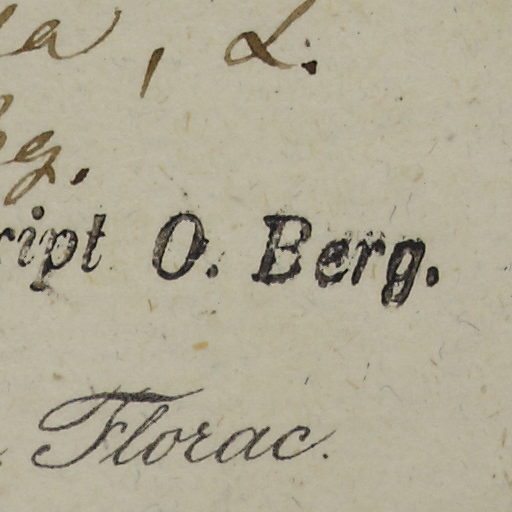 a, L.
g.
ript O. Berg.
Florac.